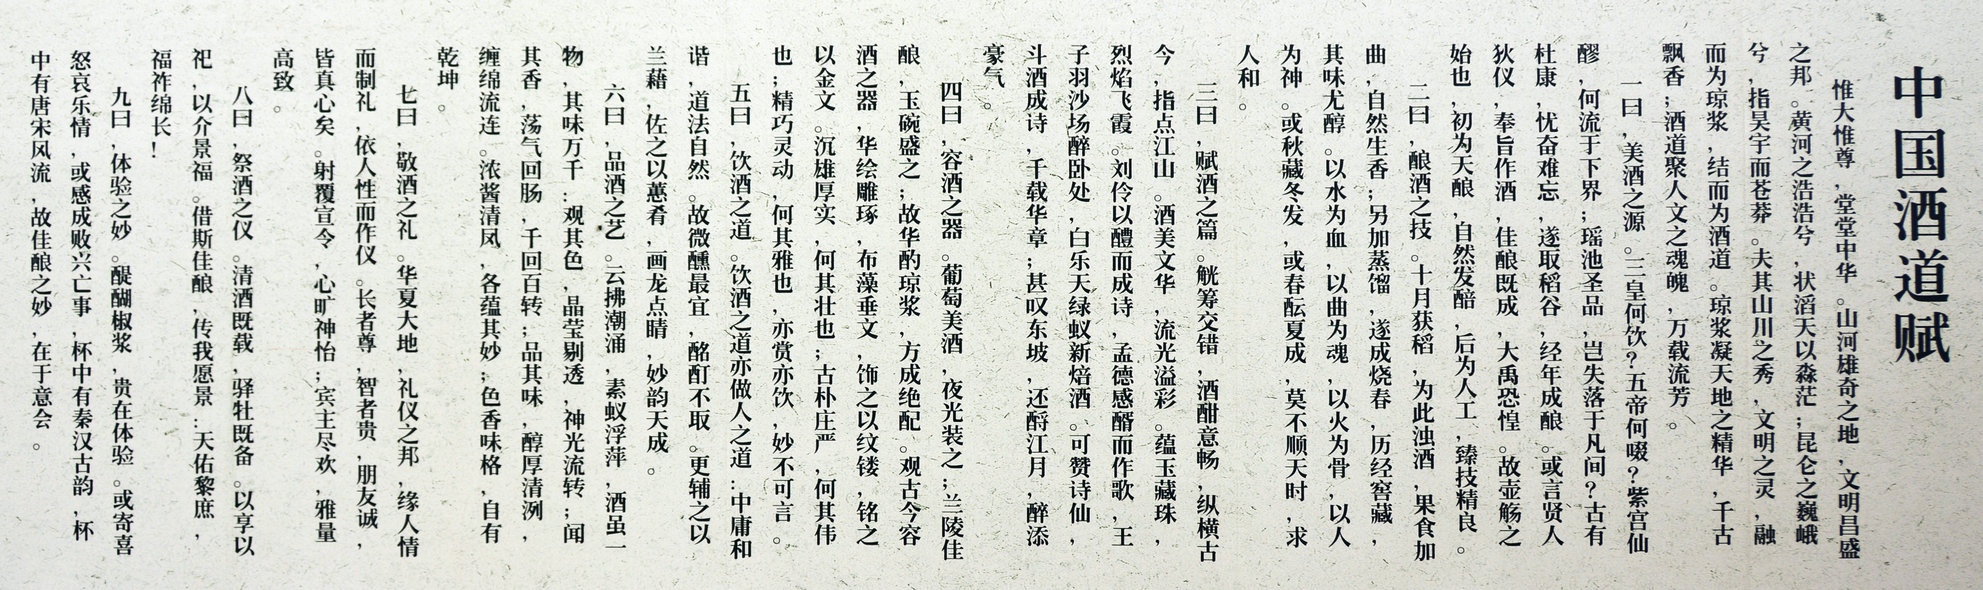 中国酒道赋
惟大惟尊，堂堂中华。山河雄奇之地，文明昌盛
之邦。黄河之浩浩兮，状滔天以淼茫；昆仑之巍峨
兮，指昊宇而苍莽。夫其山川之秀，文明之灵，融
而为琼浆，结而为酒道。琼浆凝天地之精华，千古
飘香；酒道聚人文之魂魄，万载流芳。
一曰，美酒之源。三皇何饮？五帝何啜？紫宫仙
醪，何流于下界；瑶池圣品，岂失落于凡间？古有
杜康，忧奋难忘，遂取稻谷，经年成酿。或言贤人
狄仪，奉旨作酒，佳酿既成，大禹恐惶。故壶觞之
始也，初为天酿，自然发酵，后为人工，臻技精良。
二曰，酿酒之技。十月获稻，为此浊酒，果食加
曲，自然生香；另加蒸馏，遂成烧春，历经窖藏，
其味尤醇。以水为血，以曲为魂，以火为骨，以人
为神。或秋藏冬发，或春酝夏成，莫不顺天时，求
人和。
三曰，赋酒之篇。觥筹交错，酒酣意畅，纵横古
今，指点江山。酒美文华，流光溢彩。蕴玉藏珠，
烈焰飞霞。刘伶以醴而成诗，孟德感醑而作歌，王
子羽沙场醉卧处，白乐天绿蚁新焙酒。可赞诗仙，
斗酒成诗，千载华章；甚叹东坡，还酹江月，醉添
豪气。
四曰，容酒之器。葡萄美酒，夜光装之；兰陵佳
酿，玉碗盛之；故华酌琼浆，方成绝配。观古今容
酒之器，华绘雕琢，布藻垂文，饰之以纹镂，铭之
以金文。沉雄厚实，何其壮也；古朴庄严，何其伟
也；精巧灵动，何其雅也，亦赏亦饮，妙不可言。
五曰，饮酒之道。饮酒之道亦做人之道：中庸和
谐，道法自然。故微醺最宜，酩酊不取。更辅之以
兰藉，佐之以蕙肴，画龙点睛，妙韵天成。
六曰，品酒之艺。云拂潮涌，素蚁浮萍，酒虽一
物，其味万千：观其色，晶莹剔透，神光流转；闻
其香，荡气回肠，千回百转；品其味，醇厚清洌，
缠绵流连。浓酱清凤，各蕴其妙；色香味格，自有
乾坤。
七曰，敬酒之礼。华夏大地，礼仪之邦，缘人情
而制礼，依人性而作仪。长者尊，智者贵，朋友诚，
皆真心矣。射覆宣令，心旷神怡；宾主尽欢，雅量
高致。
八曰，祭酒之仪。清酒既载，骍牡既备。以享以
祀，以介景福。借斯佳酿，传我愿景：天佑黎庶，
福祚绵长！
九曰，体验之妙。醍醐椒浆，贵在体验。或寄喜
怒哀乐情，或感成败兴亡事，杯中有秦汉古韵，杯
中有唐宋风流，故佳酿之妙，在于意会。